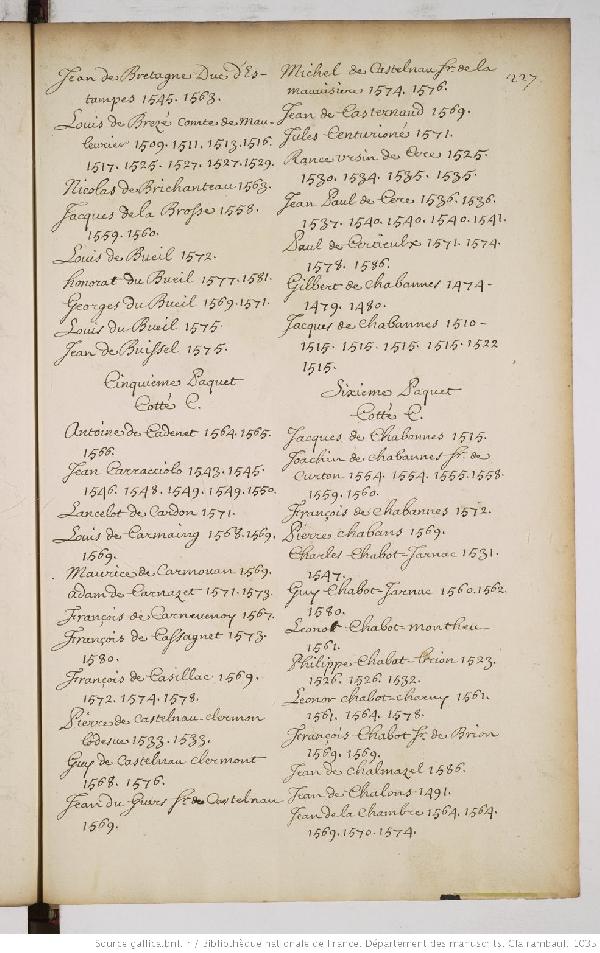 227.
Jean de Bretagne Duc d'Es-
tampes 1545. 1563.
Louis de Brezé Comte de Mau-
levrier 1509. 1511. 1513. 1516.
1517. 1525. 1527. 1527. 1529.
Nicolas de Brichanteau 1563.
Jacques de la Brosse 1558.
1559. 1560.
Louis de Bueil 1572.
honorat du Bueil 1577. 1581.
Georges du Bueil 1569. 1571.
Louis du Bueil 1575.
Jean de Buissel 1575.
Cinquieme Paquet
Cotté C.
Antoine de Cadenet 1564. 1565.
1566.
Jean Carracciolo 1543. 1545.
1546. 1548. 1549. 1549. 1550.
Lancelot de Cardon 1571.
Louis de Carmaing 1568. 1569.
1569.
Maurice de Carmouan 1569.
adam de Carnazet 1571. 1573.
François de Carnevenoy 1567.
François de Cassagnet 1573.
1580.
François de Casillac 1569.
1572. 1574. 1578.
Pierre de Castelnau-clermon
Lodesue 1533. 1533.
Guy de Castelnau clermont
1568. 1576.
Jean du Guers Sr. de Castelnau
1569.
Michel de Castelnau Sr. de la
mauvisiere 1574. 1576.
Jean de Casternaud 1569.
Jules Centurioné 1571.
Rance ursin de Cere 1525.
1530. 1534. 1535. 1535.
Jean Paul de Cere 1536. 1536.
1537. 1540. 1540. 1540. 1541.
Paul de 1571. 1574.
1578. 1586.
Gilbert de Chabannes 1474-
1479. 1480.
Jacques de Chabannes 1510-
1515. 1515. 1515. 1515. 1522
1515.
Sixieme Paquet
Cotté C.
Jacques de Chabannes 1515.
Joachim de chabannes Sr. de
Curton 1554. 1554. 1555. 1558.
1559. 1560.
François de Chabannes 1572.
Pierre chabans 1569.
Charles Chabot-Jarnac 1531.
1547.
Guy Chabot-Jarnac 1560. 1562.
1580.
Leonor Chabot-montlieu-
1561.
Philippe Chabot-Brion 1523.
1526. 1526. 1532.
Leonor chabot-charny 1561.
1561. 1564. 1578.
François Chabot Sr. de Brion
1569. 1569.
Jean de Chalmazel 1586.
Jean de Chalons 1491.
Jean de la Chambre 1564. 1564.
1569. 1570. 1574.
Source gallica.bnf.fr / Bibliothèque nationale de France. Département des manuscrits. Clairambault 1035